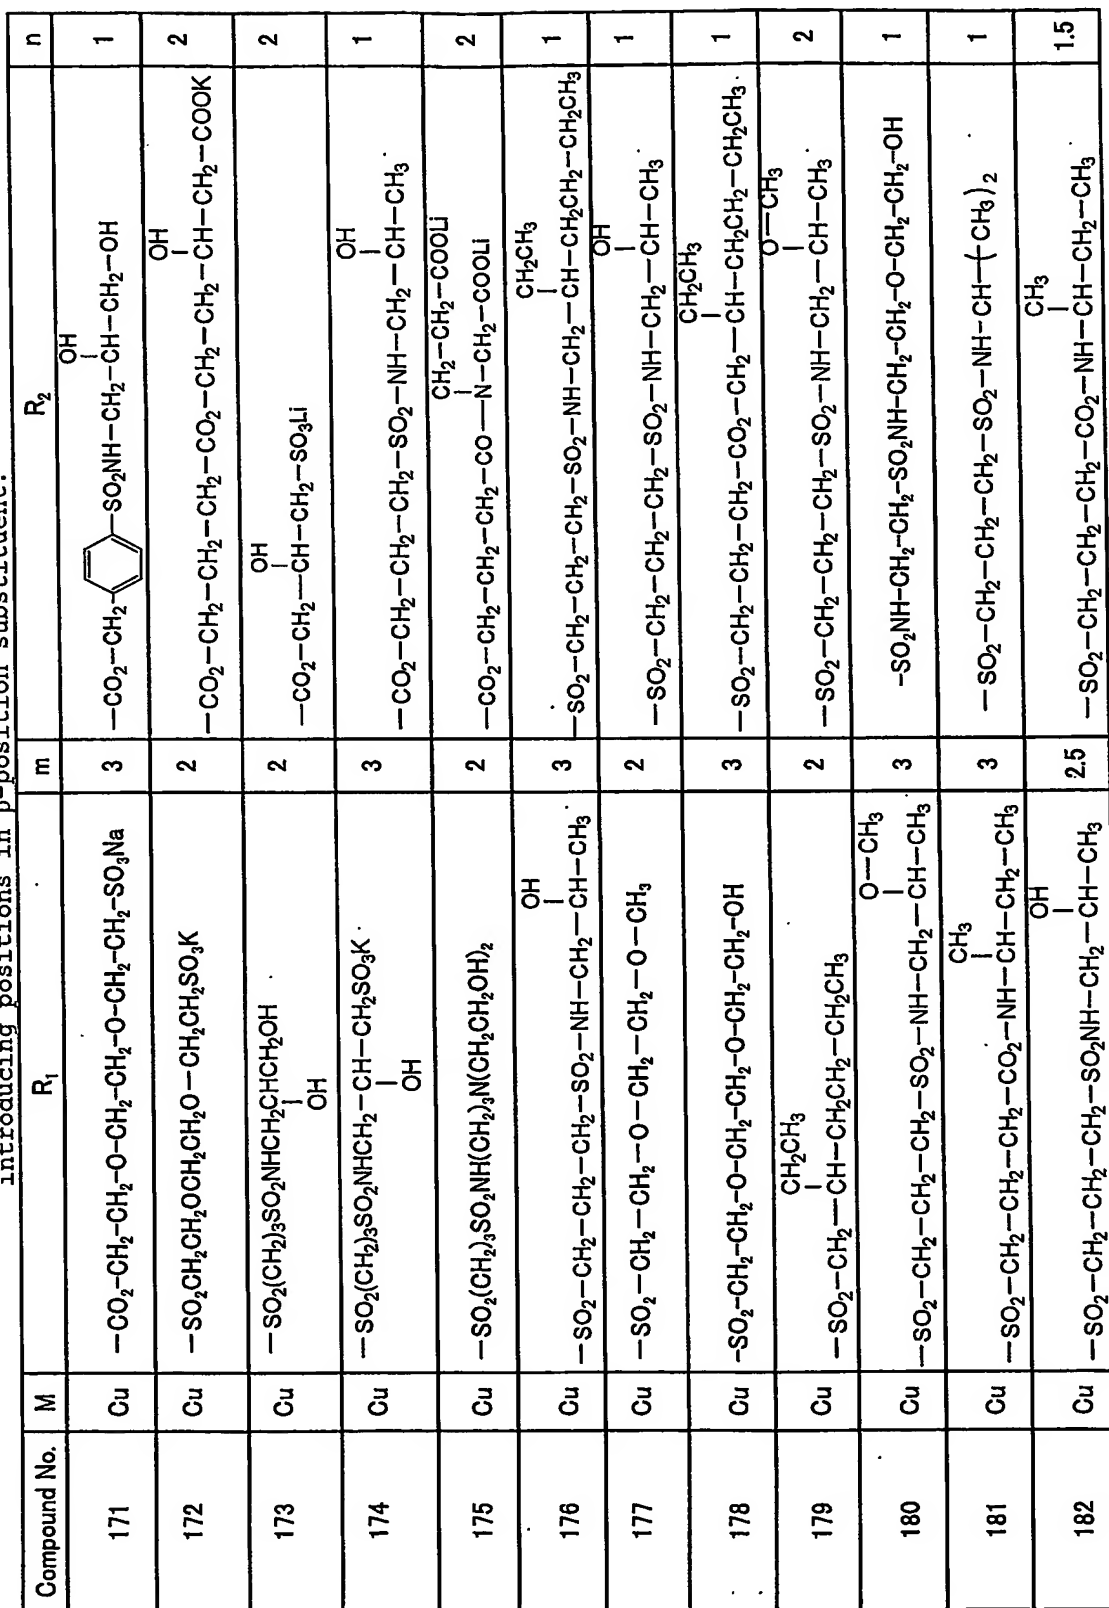 introducing positions in β-position substituent.
Compound No. M R₁ m R₂ n
171 Cu —CO₂-CH₂-CH₂-O-CH₂-CH₂-O-CH₂-CH₂-SO₃Na 3 —CO₂—CH₂-⌬-SO₂NH—CH₂—CH(OH)—CH₂—OH 1
172 Cu —SO₂CH₂CH₂OCH₂CH₂O—CH₂CH₂SO₃K 2 —CO₂—CH₂—CH₂—CH₂—CO₂—CH₂—CH₂—CH(OH)—CH₂—COOK 2
173 Cu —SO₂(CH₂)₃SO₂NHCH₂CH(OH)CH₂OH 2 —CO₂—CH₂—CH(OH)—CH₂—SO₃Li 2
174 Cu —SO₂(CH₂)₃SO₂NHCH₂—CH(OH)—CH₂SO₃K 3 —CO₂—CH₂—CH₂—CH₂—SO₂—NH—CH₂—CH(OH)—CH₃ 1
175 Cu —SO₂(CH₂)₃SO₂NH(CH₂)₃N(CH₂CH₂OH)₂ 2 —CO₂—CH₂—CH₂—CH₂—CO—N(CH₂—CH₂—COOLi)—CH₂—COOLi 2
176 Cu —SO₂—CH₂—CH₂—CH₂—SO₂—NH—CH₂—CH(OH)—CH₃ 3 —SO₂—CH₂—CH₂—CH₂—SO₂—NH—CH₂—CH(CH₂CH₃)—CH₂CH₂—CH₂CH₃ 1
177 Cu —SO₂—CH₂—CH₂—O—CH₂—CH₂—O—CH₃ 2 —SO₂—CH₂—CH₂—CH₂—SO₂—NH—CH₂—CH(OH)—CH₃ 1
178 Cu -SO₂-CH₂-CH₂-O-CH₂-CH₂-O-CH₂-CH₂-OH 3 —SO₂—CH₂—CH₂—CH₂—CO₂—CH₂—CH(CH₂CH₃)—CH₂CH₂—CH₂CH₃ 1
179 Cu —SO₂—CH₂—CH(CH₂CH₃)—CH₂CH₂—CH₂CH₃ 2 —SO₂—CH₂—CH₂—CH₂—SO₂—NH—CH₂—CH(O—CH₃)—CH₃ 2
180 Cu —SO₂—CH₂—CH₂—CH₂—SO₂—NH—CH₂—CH(O—CH₃)—CH₃ 3 -SO₂NH-CH₂-CH₂-SO₂NH-CH₂-CH₂-O-CH₂-CH₂-OH 1
181 Cu —SO₂—CH₂—CH₂—CH₂—CO₂—NH—CH(CH₃)—CH₂—CH₃ 3 —SO₂—CH₂—CH₂—CH₂—SO₂—NH—CH—(CH₃)₂ 1
182 Cu —SO₂—CH₂—CH₂—CH₂—SO₂NH—CH₂—CH(OH)—CH₃ 2.5 —SO₂—CH₂—CH₂—CH₂—CO₂—NH—CH(CH₃)—CH₂—CH₃ 1.5